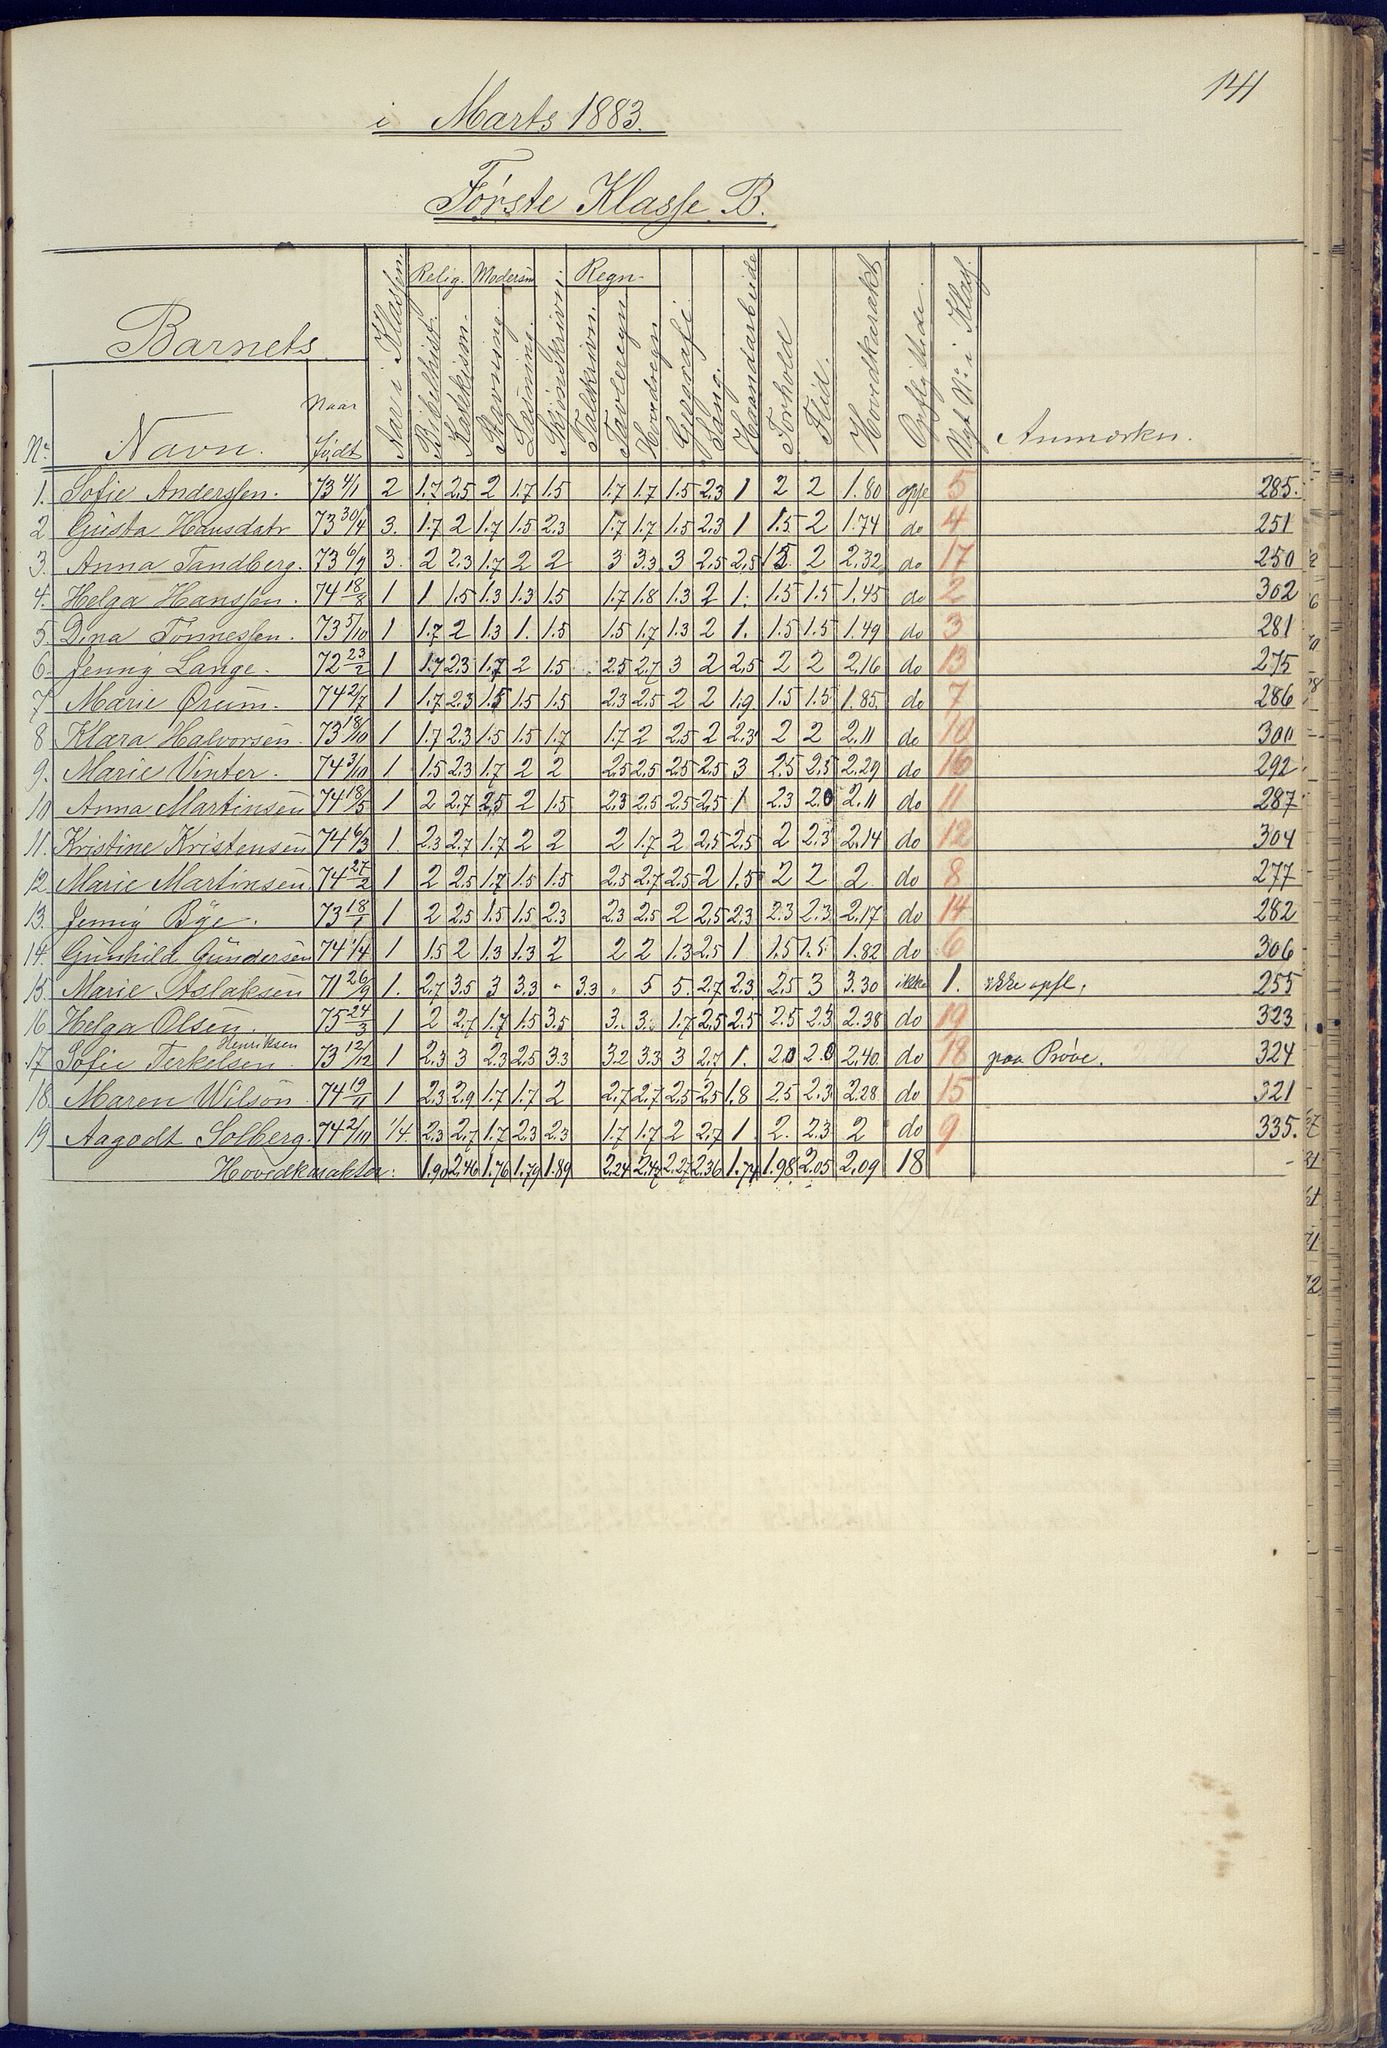 141
i Marts 1883.
Første Klasse B.
Barnets
Nr. Navn. Naar født Aar i Klassen. Relig. Bibelhist. Katekism. Modersm Stavning. Læsning. Skjønskrivn. Regn. Talskrivn. Tavleregn Hovedregn Geografi Sang. Haandarbeide Forhold Flid. Hovedkarakt Opflyttede. Nyt No i Klass. Anmærkn.
1. Sofie Anderssen. 73 4/1 2 1.7 2.5 2 1.7 1.5 1.7 1.7 1.5 2.3 1 2 2 1.80 opfl 5 285.
2 Gusta Hansdatr 73 30/4 3. 1.7 2 1.7 1.5 2.3 1.7 1.7 1.5 2.3 1 1.5 2 1.74 do 4 251
3. Anna Tandberg. 73 6/9 3. 2 2.3 1.7 2 2 3 3.3 3 2.5 2.5 1.5 2 2.32 do 17 250
4. Helga Hanssen. 74 18/8 1 1 1.5 1.3 1.3 1.5 1.7 1.8 1.3 2 1. 1.5 1.5 1.45 do 2 302
5 Dina Tønnessen. 73 5/10 1 1.7 2 1.3 1. 1.5 1.5 1.7 1.3 2 1. 1.5 1.5 1.49 do 3 281
6. Jenny Lange. 72 23/2 1 1.7 2.3 1.7 2 1.5 2.5 2.7 3 2 2.5 2 2 2.16 do 13 275
7 Marie Ørum. 74 2/7 1 1.7 2.3 1.5 1.5 1.5 2.3 2.5 2 2 1.9 1.5 1.5 1.85. do 7 286
8 Klara Halvorsen. 73 18/10 1 1.7 2.3 1.5 1.5 1.7 1.7 2 2.5 2 2.3 2 2 2.11 do 10 300
9. Marie Vinter. 74 3/10 1 1.5 2.3 1.7 2 2 2.5 2.5 2.5 2.5 3 2.5 2.5 2.29 do 16 292
10 Anna Martinsen 74 18/5 1 2 2.7 2.5 2 1.5 2.3 2.5 2.5 2.5 1 2.3 2.0 2.11 do 11 287
11. Kristine Kristensen 74 6/3 1. 2.3 2.7 1.7 2 2 2 1.7 2 2.5 2.5 2 2.3 2.14 do 12 304
12. Marie Martinsen 74 27/2 1 2 2.5 1.7 1.5 1.5 2.5 2.7 2.5 2 1.5 2 2 2. do 8 277
13. Jenny Bye. 73 18/1 1 2 2.5 1.5 1.5 2.3 2.3 2.5 2 2.5 2.3 2.3 2.3 2.17 do 14 282
14. Gunhild Gundersen 74 1/4 1 1.5 2 1.3 1.3 2 2 2 1.3 2.5 1. 1.5 1.5 1.82 do 6 306
15. Marie Aslaksen 71 26/9 1. 2.7 3.5 3 3.3 " 3.3 " 5 5. 2.7 2.3 2.5 3 3.30 ikke 1. ikke opfl. 255
16 Helga Olsen. 75 24/3 1 2 2.7 1.7 1.5 3.5 3. 3. 1.7 2.5 2.5 2.5 2.3 2.38 do 19 323
Henriksen
17 Sofie Terkelsen. 73 12/12 1 2.3 3 2.3 2.5 3.3 3.2 3.3 3 2.7 1. 2.0 2.0 2.40. do 18 paa Prøve. 324
18 Maren Wilson 74 19/11 1 2.3 2.9 1.7 1.7 2 2.7 2.7 2.5 2.5 1.8 2.5 2.3 2.28 do 15 321
19 Aagodt Solberg. 74 2/10 1/4. 2.3 2.7 1.7 2.3 2.3 1.7 1.7 2 2.7 1. 2. 2.3 2 do 9 335.
Hovedkarakter: 1.90 2.46 1.76 1.79 1.89 2.24 2.47 2.27 2.36 1.74 1.98 2.05 2.09 18